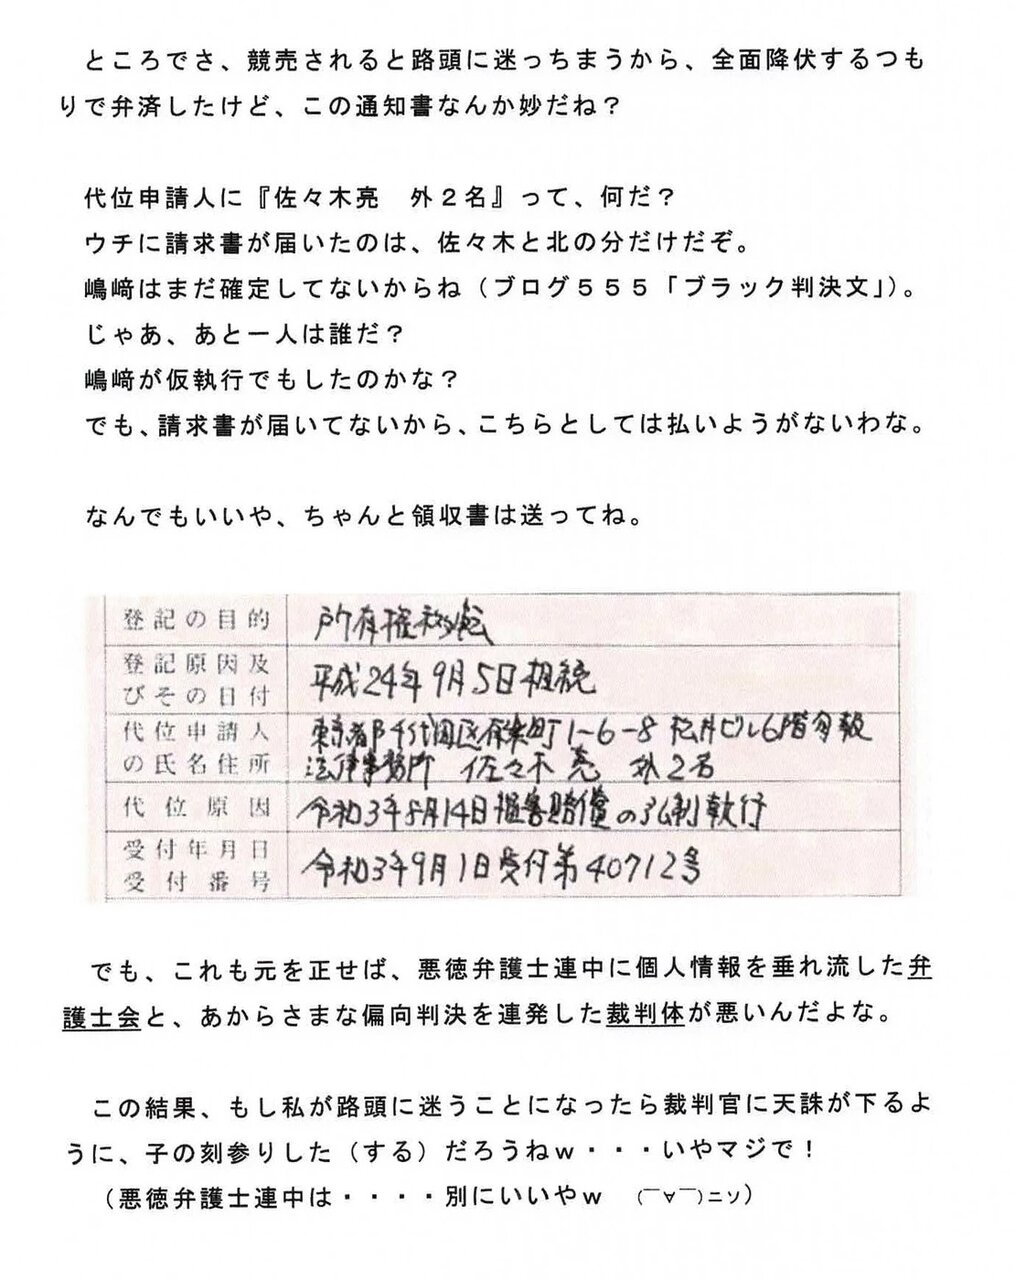 ところでさ、競売されると路頭に迷っちまうから、全面降伏するつも
りで弁済したけど、この通知書なんか妙だね？
代位申請人に『佐々木亮　外２名』って、何だ？
ウチに請求書が届いたのは、佐々木と北の分だけだぞ。
嶋﨑はまだ確定してないからね（ブログ５５５「ブラック判決文」）。
じゃあ、あと一人は誰だ？
嶋﨑が仮執行でもしたのかな？
でも、請求書が届いてないから、こちらとしては払いようがないわな。
なんでもいいや、ちゃんと領収書は送ってね。
登記の目的　所有権移転
登記原因及
びその日付　平成24年9月5日相続
代位申請人　東京都千代田区有楽町1-6-8 松井ビル6階旬報
の氏名住所　法律事務所　佐々木亮　外2名
代位原因　令和3年8月14日損害賠償の強制執行
受付年月日
受付番号　令和3年9月1日受付第40712号
でも、これも元を正せば、悪徳弁護士連中に個人情報を垂れ流した弁
護士会と、あからさまな偏向判決を連発した裁判体が悪いんだよな。
この結果、もし私が路頭に迷うことになったら裁判官に天誅が下るよ
うに、子の刻参りした（する）だろうねｗ・・・いやマジで！
（悪徳弁護士連中は・・・・別にいいやｗ　(￣∀￣)ニソ）